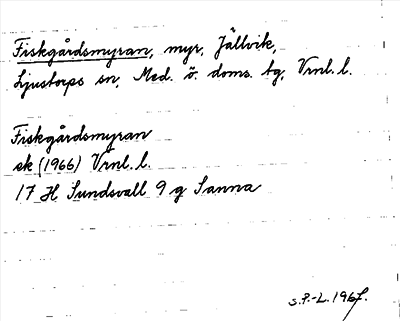 Fiskgårdsmyran, myr, Jällvik,
Ljustorps sn, Med. ö. doms. tg, Vrnl. l.
Fiskgårdsmyran
ek (1966) Vrnl. l.
17 H Sundsvall 9 g Sanna
s.P.-L. 1967.